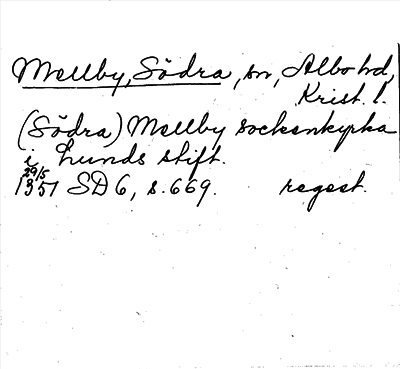 Mellby, Södra, sn, Albo hd,
Krist. l.
(Södra) Mellby sockenkyrka
i Lunds stift.
29/5
1351 SD 6, s. 669. regest.